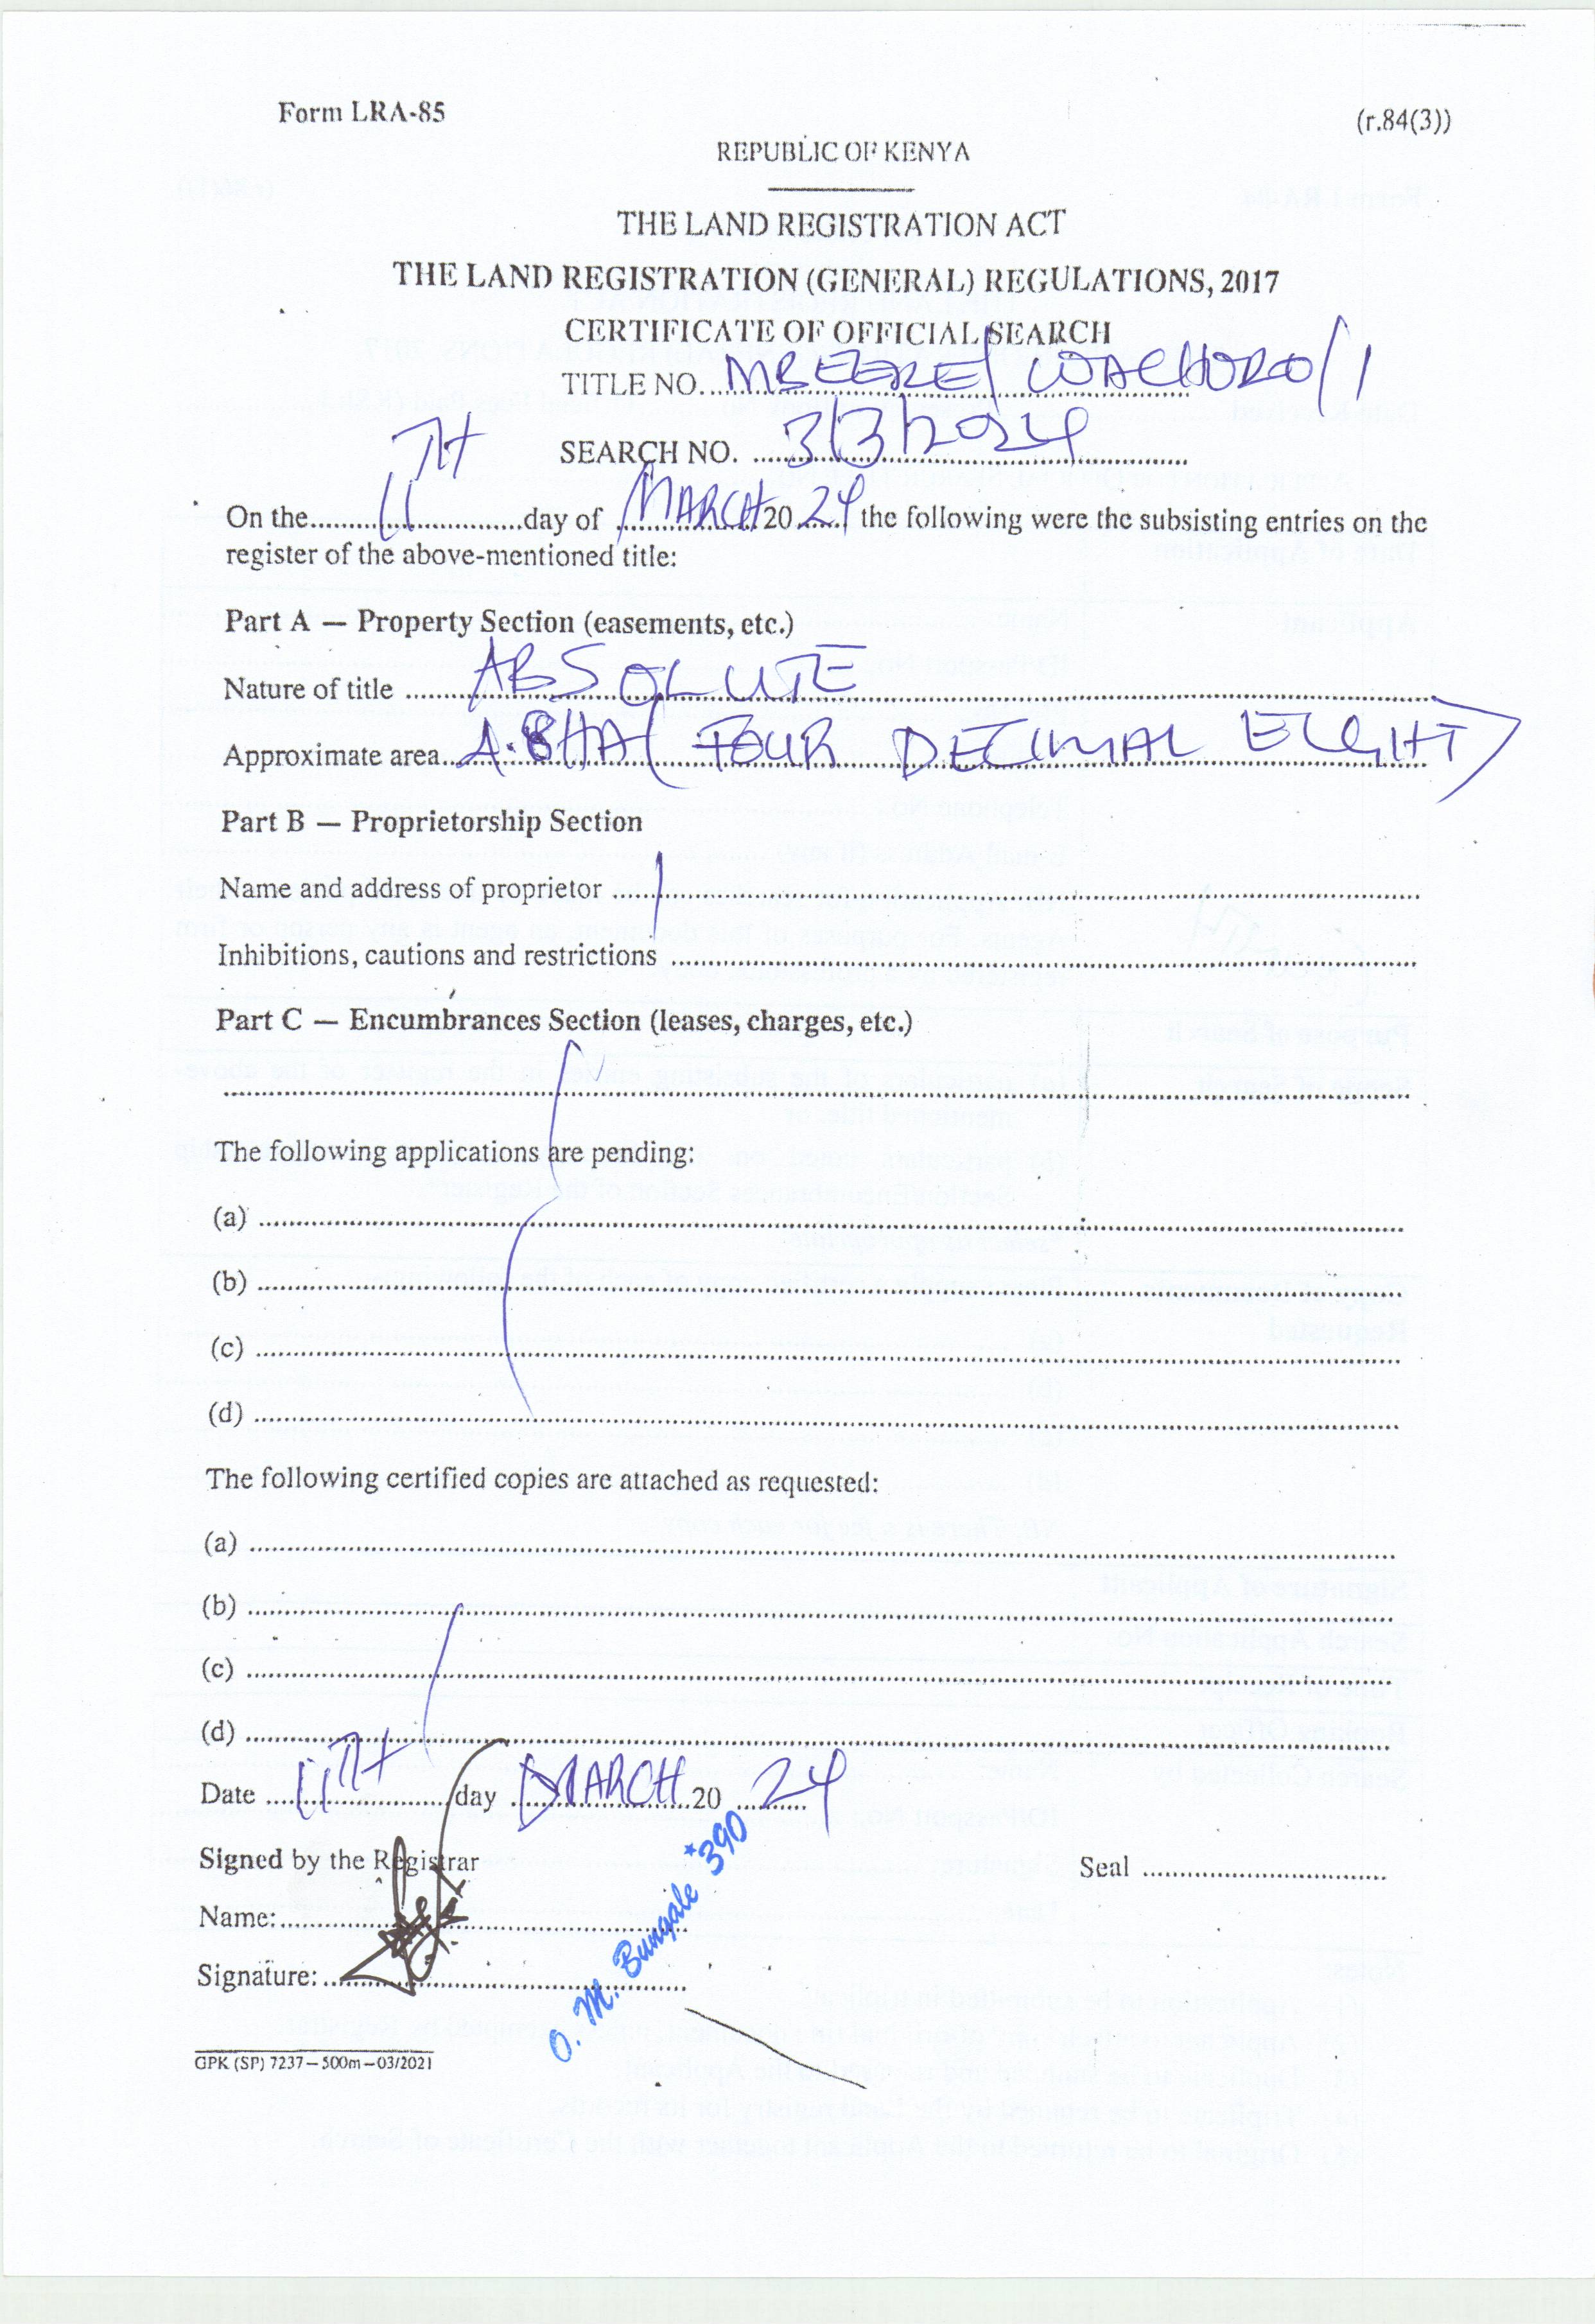 Form LRA-85
(r.84(3))
REPUBLIC OF KENYA
THE LAND REGISTRATION ACT
THE LAND REGISTRATION (GENERAL) REGULATIONS, 2017
CERTIFICATE OF OFFICIAL SEARCH
TITLE NO. MBEERE/ WACHORO/1
SEARCH NO. 3/3/2024
On the 11TH day of MARCH 20 24 the following were the subsisting entries on the
register of the above-mentioned title:
Part A — Property Section (easements, etc.)
Nature of title ABSOLUTE
Approximate area 4.8HA( FOUR DECIMAL EIGHT)
Part B — Proprietorship Section
Name and address of proprietor
Inhibitions, cautions and restrictions
Part C — Encumbrances Section (leases, charges, etc.)
The following applications are pending:
(a)
(b)
(c)
(d)
The following certified copies are attached as requested:
(a)
(b)
(c)
(d)
Date 11TH day MARCH 20 24
Signed by the Registrar
Seal
Name:
Signature:
O. M. Bungale *390
GPK (SP) 7237—500m—03/2021